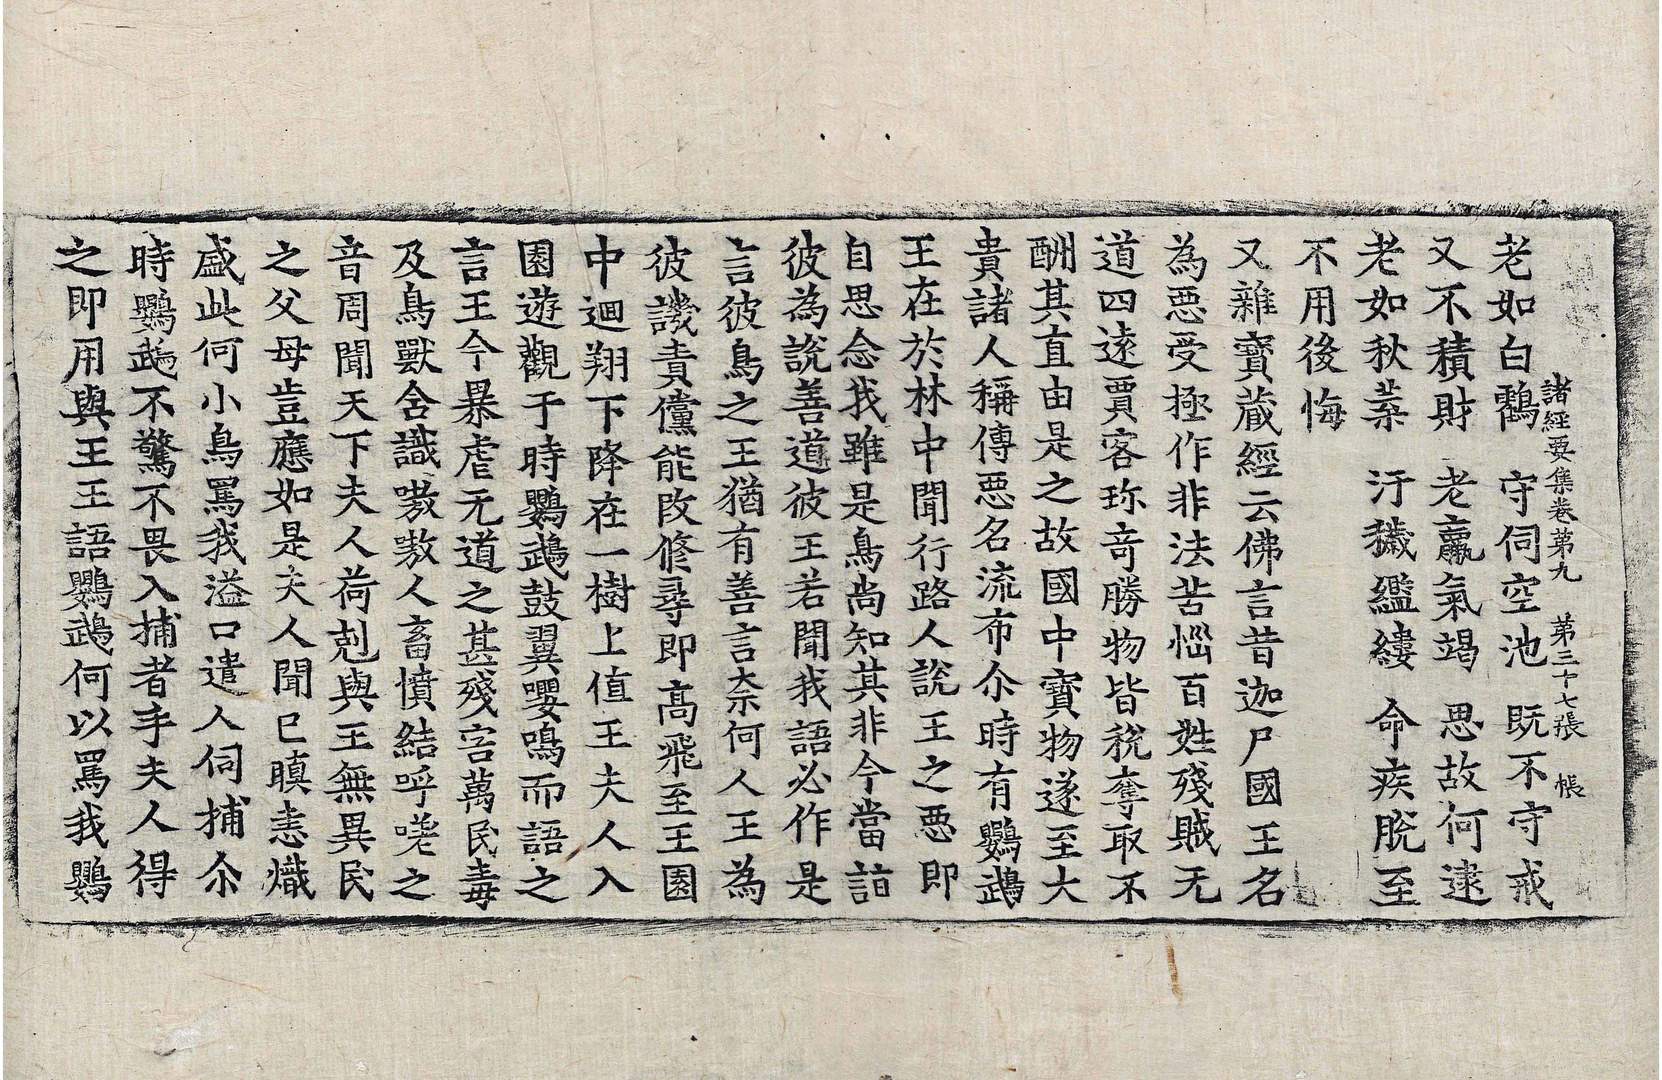 諸經要集卷第九　第三十七張　帳
老如白鸛　守伺空池　既不守戒
又不積財　老羸氣竭　思故何逮
老如秋葉　汙穢鑑縷　命疾脫至
不用後悔
又雜寶藏經云佛言昔迦尸國王名
為惡受極作非法苦惱百姓殘賊无
道四遠賈客珎竒勝物皆稅奪取不
酬其直由是之故國中寶物遂至大
貴諸人稱傳惡名流布尒時有鸚鵡
王在於林中聞行路人說王之惡即
自思念我雖是鳥尚知其非今當詣
彼為說善道彼王若聞我語必作是
言彼鳥之王猶有善言柰何人王為
彼譏責儻能改修尋即高飛至王園
中迴翔下降在一樹上值王夫人入
園遊觀于時鸚鵡鼓翼嚶鳴而語之
言王今暴虐无道之甚殘害萬民毒
及鳥獸含識嗷嗷人畜憤結呼嗟之
音周聞天下夫人荷剋與王無異民
之父母豈應如是夫人聞已瞋恚熾
盛此何小鳥罵我溢口遣人伺捕尒
時鸚鵡不驚不畏入捕者手夫人得
之即用與王王語鸚鵡何以罵我鸚